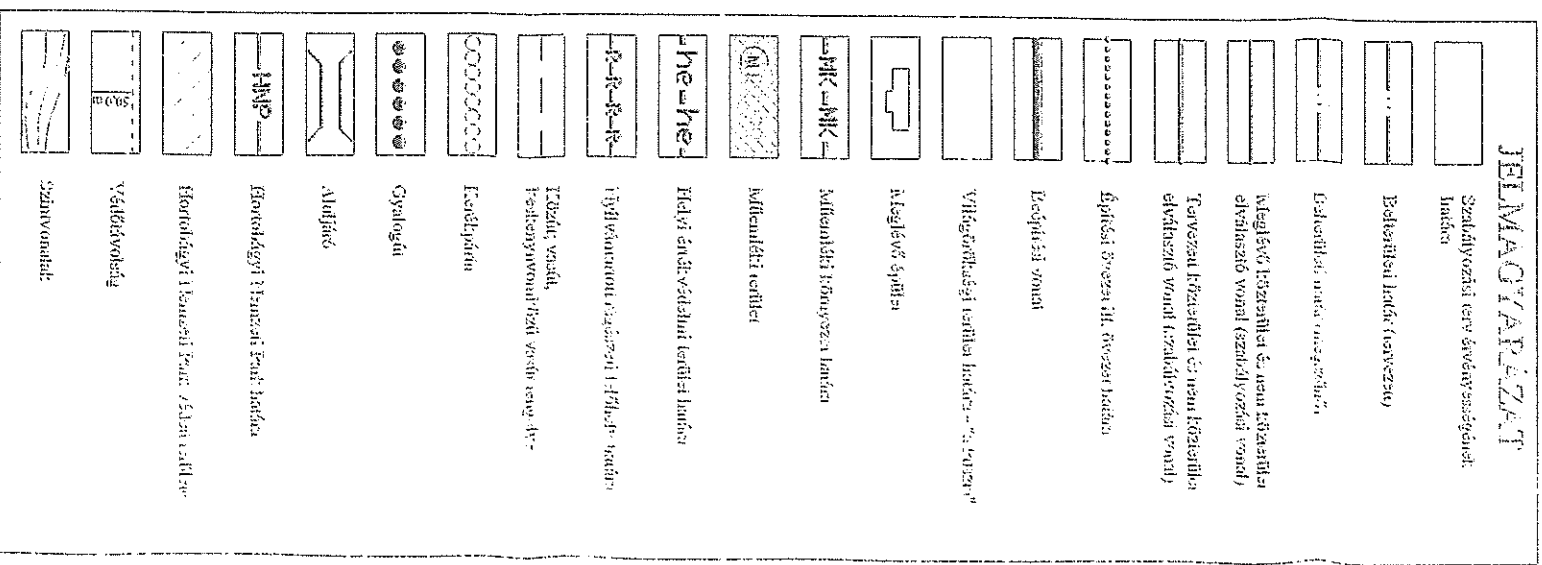 JELMAGYARÁZAT
Szabályozási terv érvényességének
határa
Belterületi határ (tervezett)
Belterületi határ megszűnő
Meglévő közterület és nem közterület
elválasztó vonal (szabályozási vonal)
Tervezett közterület és nem közterület
elválasztó vonal (szabályozási vonal)
Építési övezet ill. övezet határa
Beépítési vonal
Világörökségi terület határa -
Meglévő épület
-MK-MK-
Műemléki környezet határa
Műemléki terület
-he-he-
Helyi értékvédelmi terület határa
-R-R-R-R
Nyilvántartott régészeti lelőhely határa
Közút, vasút,
keskenynyomtávú vasút tengelye
Kerékpárút
Gyalogút
Aluljáró
HNP
Hortobágyi Nemzeti Park határa
Hortobágyi Nemzeti Park védett területe
50,0 m
Védőtávolság
Szintvonalak